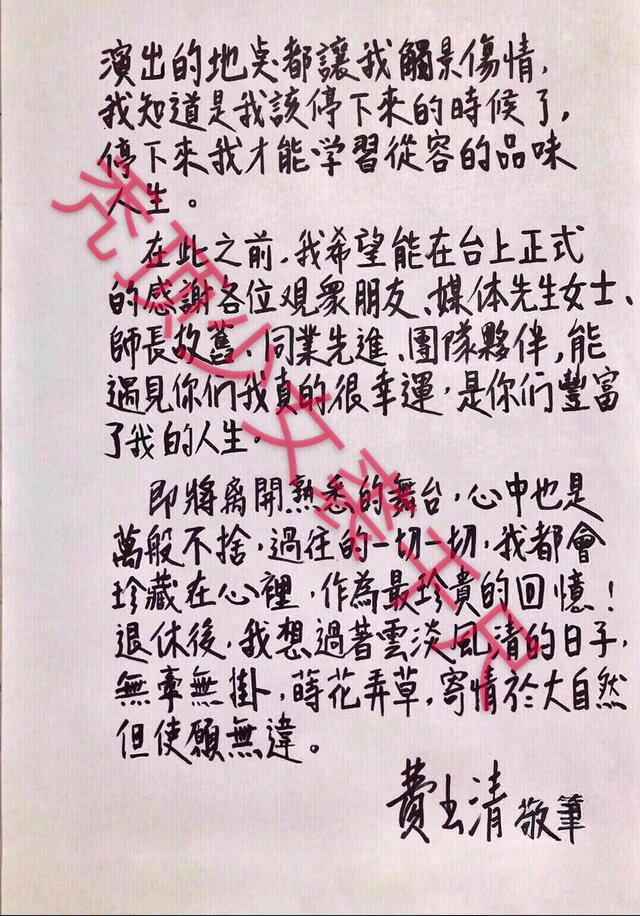 演出的地点都讓我觸景傷情,
我知道是我該停下來的時候了,
停下來我才能学習從容的品味
人生。
在此之前,我希望能在台上正式
的感謝各位观眾朋友、媒体先生女士、
師長故舊、同業先進、團隊夥伴,能
遇見你们我真的很幸運,是你们豐富
了我的人生。
即將离開熟悉的舞台,心中也是
萬般不捨,過往的一切一切,我都會
珍藏在心裡,作為最珍貴的回憶!
退休後,我想過著雲淡風清的日子,
無牽無掛,蒔花弄草,寄情於大自然
但使願無違。
費玉清 敬筆
秃顶少女蔡千良